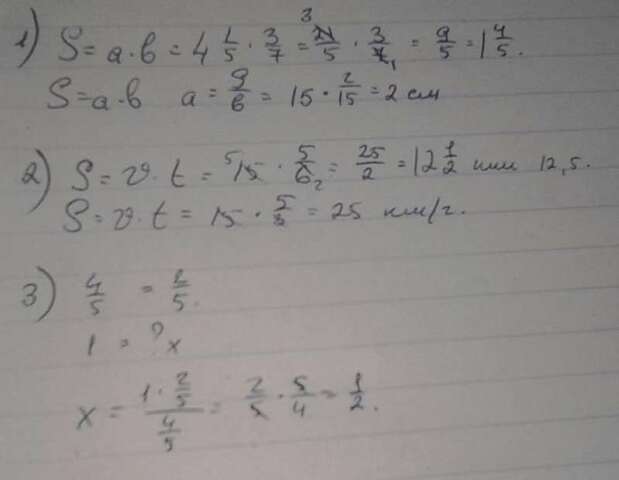 1) S = a·b = 4 1/5 · 3/7 = 21/5 · 3/7 = 9/5 = 1 4/5.
S = a·b a = S/b = 15 · 2/15 = 2 см
2) S = v·t = 15 · 5/6 = 25/2 = 12 1/2 или 12,5.
S = v·t = 15 · 5/3 = 25 км/г.
3) 4/5 = 2/5.
1 = ?x
x = (1 · 2/5)/(4/5) = 2/5 · 5/4 = 1/2.